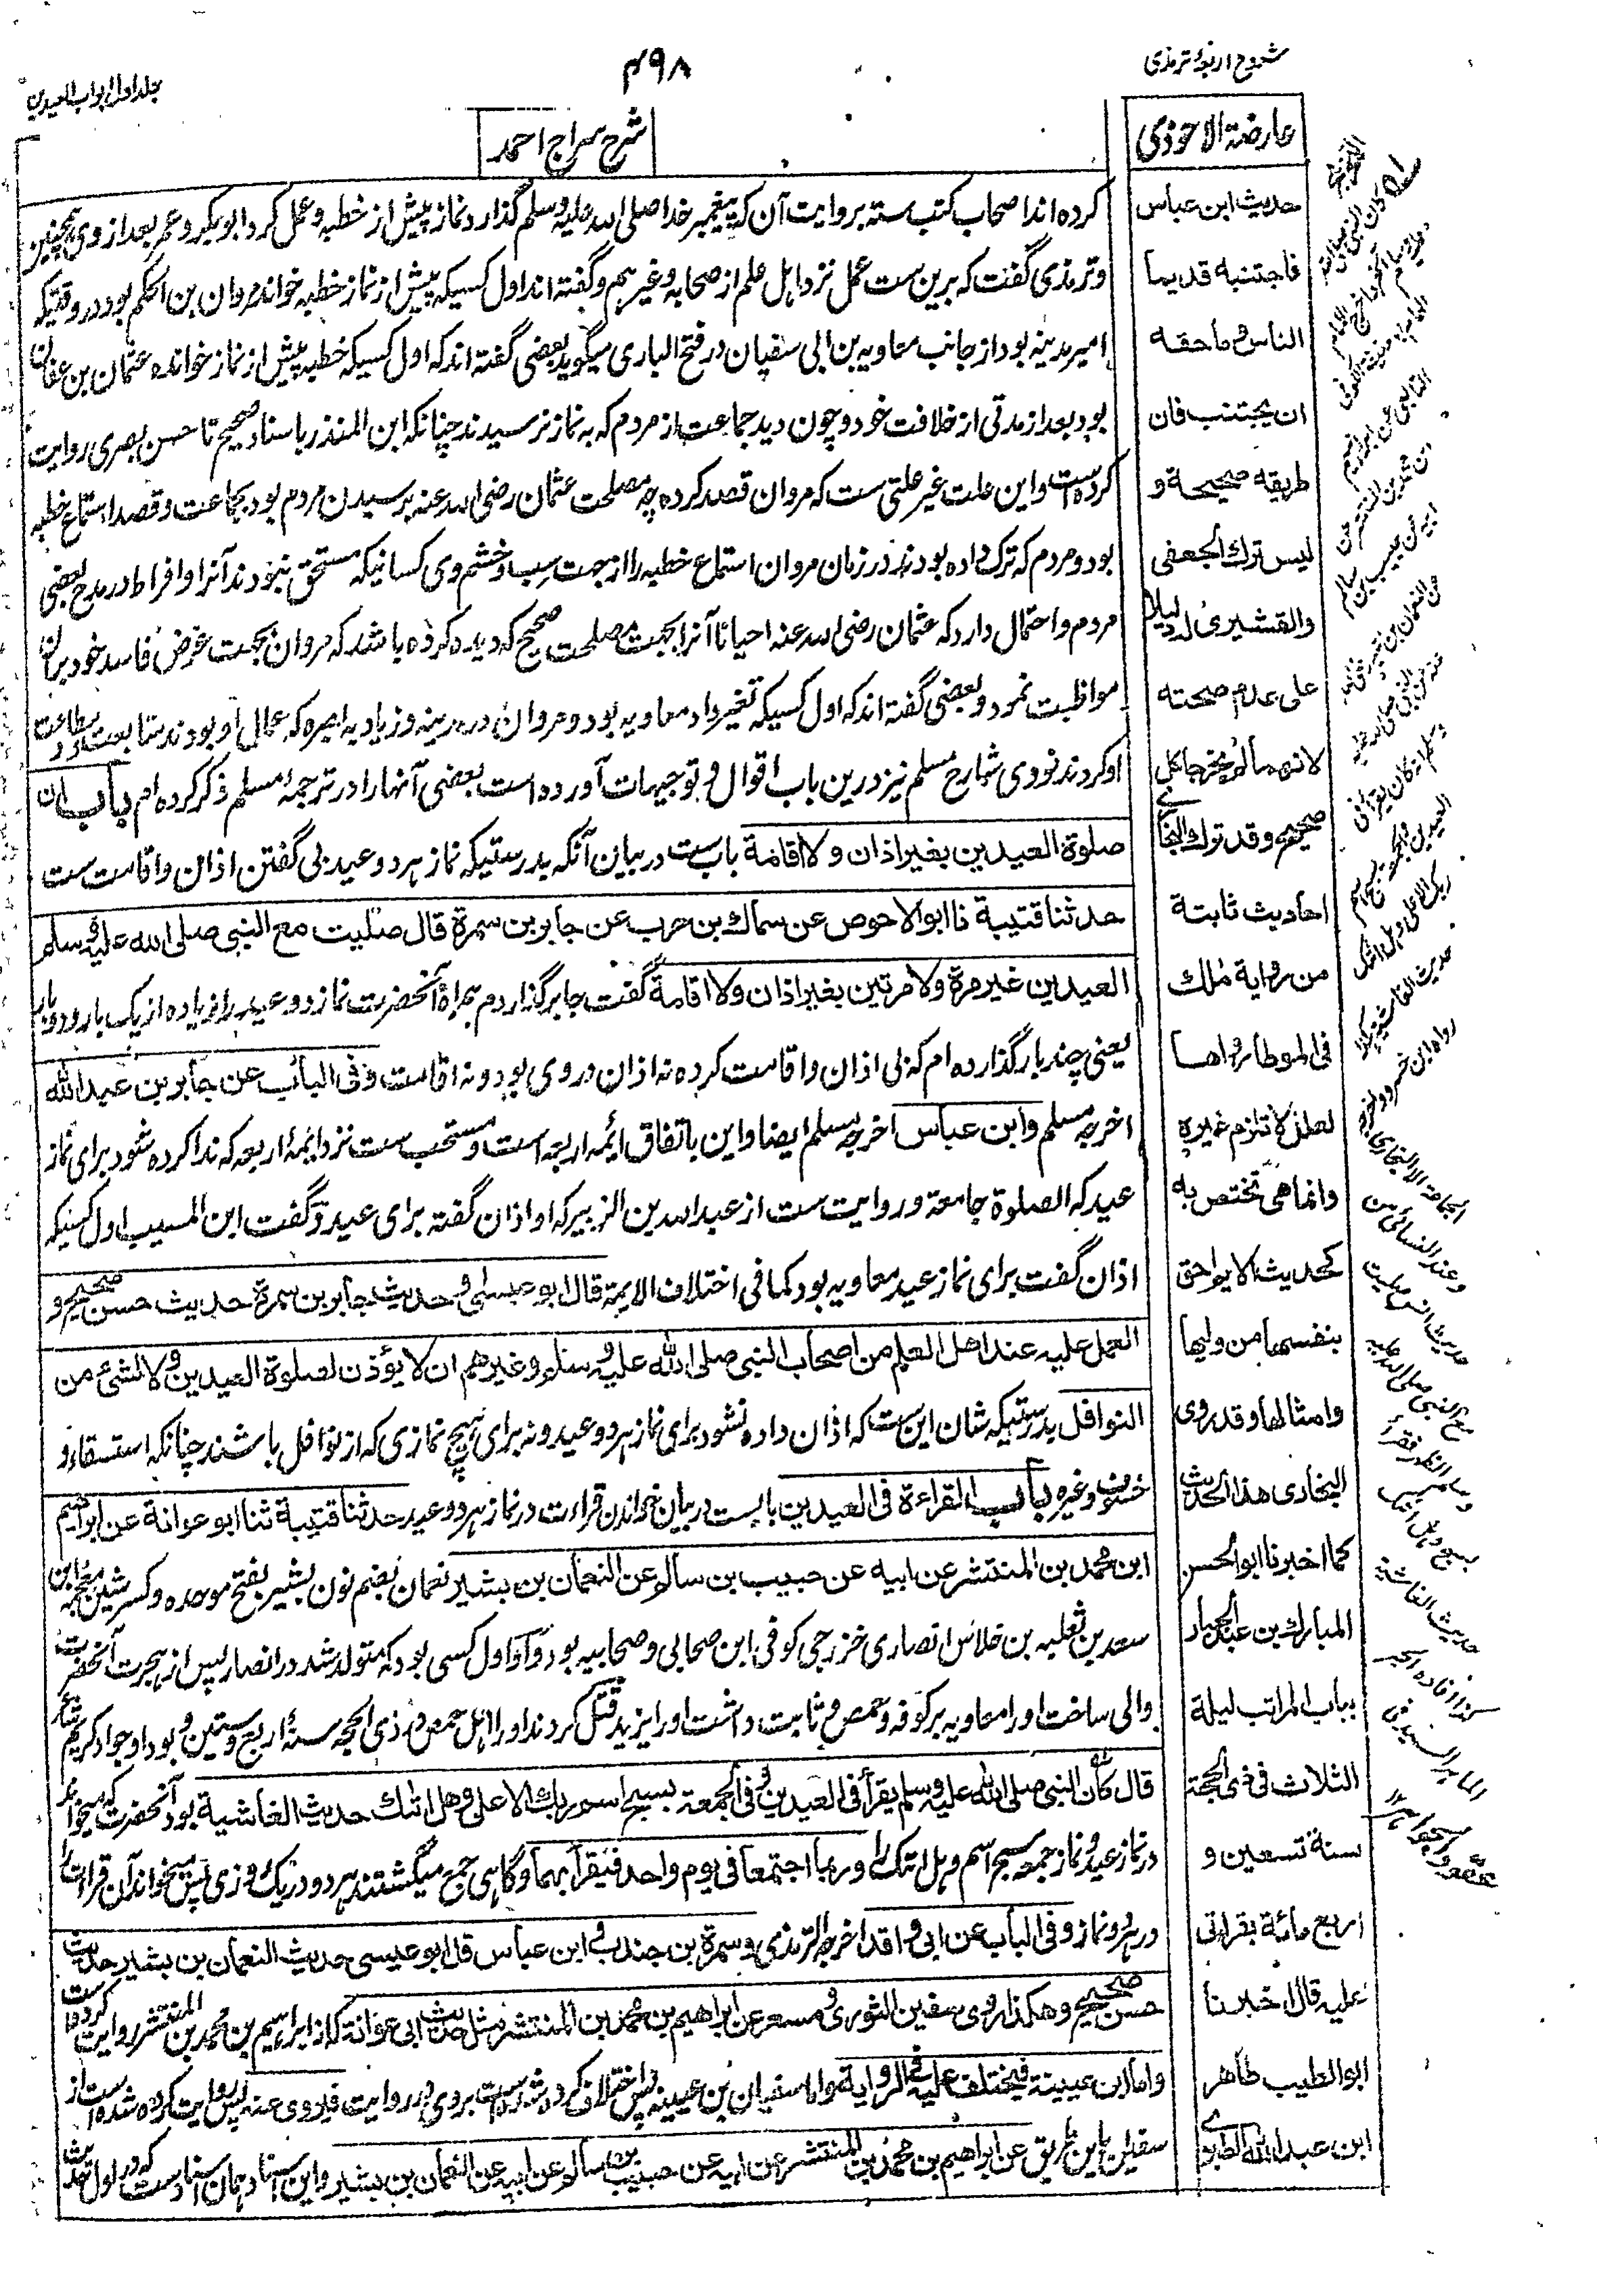 شروح اربعهٔ ترمذی
۴۹۸
جلد اول ابواب العیدین
عارضة الاحوذی
شرح سراج احمد
کرده اند اصحاب کتب سته بروایت آن که پیغمبر خدا صلی الله علیه وسلم گذارد نماز پیش از خطبه و عمل کرد ابوبکر و عمر بعد از وی همچنین
و ترمذی گفت که برین ست عمل نزد اهل علم از صحابه و غیرهم و گفته اند اول کسیکه پیش از نماز خطبه خواند مروان بن الحکم بود در وقتیکه
امیر مدینه بود از جانب معاویه بن ابی سفیان در فتح الباری میگوید بعضی گفته اند که اول کسیکه خطبه پیش از نماز خوانده عثمان بن عفان
بود بعد از مدتی از خلافت خود و چون دید جماعت از مردم که به نماز نرسیدند چنانکه ابن المنذر باسناد صحیح تا حسن بصری روایت
کرده ست و این علت غیر علتی ست که مروان قصد کرده چه مصلحت عثمان رضی الله عنه بر رسیدن مردم بود بجماعت و قصد استماع خطبه
بود و مردم که ترک داده بودند در زمان مروان استماع خطبه را از جهت سب و خشم وی کسانیکه مستحق نبودند آنرا و افراط در مدح بعضی
مردم و احتمال دارد که عثمان رضی الله عنه احیانا آنرا بجهت مصلحت صحیح که دیده کرده باشد که مروان بجهت غرض فاسد خود بران
مواظبت نمود و بعضی گفته اند که اول کسیکه تغیر داد معاویه بود و مروان در مدینه و زیاد به بصره که عمال او بودند متابعت
او کردند نووی شارح مسلم نیز درین باب اقوال و توجیهات آورده است بعضی آنها را در ترجمهٔ مسلم ذکر کرده ام باب ان
صلوة العیدین بغیر اذان و لا اقامة باب ست در بیان آنکه بدرستیکه نماز هر دو عید بی گفتن اذان و اقامت ست
حدثنا قتیبة نا ابو الاحوص عن سماك بن حرب عن جابر بن سمرة قال صلیت مع النبی صلی الله علیه وسلم
العیدین غیر مرة ولا مرتین بغیر اذان ولا اقامة گفت جابر گذاردم همراه آنحضرت نماز دو عید را زیاده از یک بار و دو بار
یعنی چند بار گذارده ام که بی اذان و اقامت کرده نه اذان در وی بود و نه اقامت وفی الباب عن جابر بن عبد الله
اخرجه مسلم وابن عباس اخرجه مسلم ایضا و این باتفاق ائمه اربعه است و مستحب ست نزد ائمهٔ اربعه که ندا کرده شود برای نماز
عید که الصلوة جامعة و روایت ست از عبد الله بن الزبیر که او اذان گفته برای عید و گفت ابن المسیب اول کسیکه
اذان گفت برای نماز عید معاویه بود کما فی اختلاف الایمة قال ابو عیسی و حدیث جابر بن سمرة حدیث حسن صحیح و
العمل علیه عند اهل العلم من اصحاب النبی صلی الله علیه وسلم وغیرهم ان لا یؤذن لصلوة العیدین ولا لشئ من
النوافل بدرستیکه شان این ست که اذان داده نشود برای نماز هر دو عید و نه برای هیچ نمازی که از نوافل باشند چنانکه استسقاء و
خسوف وغیره باب القراءة فی العیدین باب ست در بیان خواندن قراءت در نماز هر دو عید حدثنا قتیبة ثنا ابو عوانة عن ابراهیم
ابن محمد بن المنتشر عن ابیه عن حبیب بن سالم عن النعمان بن بشیر نعمان بضم نون بشیر بفتح موحده و کسر شین معجمه ابن
سعد بن ثعلبه بن خلاس انصاری خزرجی کوفی ابن صحابی و صحابیه بود و او اول کسی بود که متولد شد در انصار پس از هجرت آنحضرت
والی ساخت او را معاویه بر کوفه و حمص و ثابت داشت او را یزید قتل کردند او را اهل حمص در ذی الحجه سنهٔ اربع و ستین و بود او جواد کریم شاعر
قال کان النبی صلی الله علیه وسلم یقرأ فی العیدین وفی الجمعة بسبح اسم ربك الاعلی وهل اتاك حدیث الغاشیة بود آنحضرت که میخواند
در نماز عید و نماز جمعه سبح اسم و هل اتک را وربما اجتمعا فی یوم واحد فیقرأ بهما و گاهی جمع میگشتند هر دو در یک روزی پس میخواند آن قرات را
در هر دو نماز وفی الباب عن ابی واقد اخرجه الترمذی وسمرة بن جندب وابن عباس قال ابو عیسی حدیث النعمان بن بشیر حدیث
حسن صحیح وهكذا روی سفین الثوری ومسعر عن ابراهیم بن محمد بن المنتشر مثل حدیث ابی عوانة که از ابراهیم بن محمد بن المنتشر روایت کرده است
واما ابن عیینة فیختلف علیه فی الروایة و اما سفیان بن عیینه پس اختلاف کرده شده ست بر وی در روایت فیروی عنه پس روایت کرده شده است از
سفین باین طریق عن ابراهیم بن محمد بن المنتشر عن ابیه عن حبیب بن سالم عن ابیه عن النعمان بن بشیر و این اسناد همان اسناد ست که در اول حدیث
حدیث ابن عباس
فاجتنبه قدیما
الناس وما حقه
ان یجتنب فان
طریقه صحیحة و
لیس ترك الجعفی
والقشیری له دلیلا
علی عدم صحته
لانهما لم یخرجا كل
صحیح وقد ترك البخاری
احادیث ثابتة
من روایة مالك
فی الموطا رواها
لعلل لا تلزم غیره
وانما هی تختص به
كحدیث لا یواحق
بنفسها من ولیها
وامثالها وقد روی
البخاری هذا الحدیث
كما اخبرنا ابو الحسن
المبارك بن عبد الجبار
بباب المراتب لیلة
الثلاث فی ذی الحجة
سنة تسعین و
اربع مائة بقراتی
علیه قال اخبرنا
ابو الطیب طاهر
ابن عبد الله الطبری